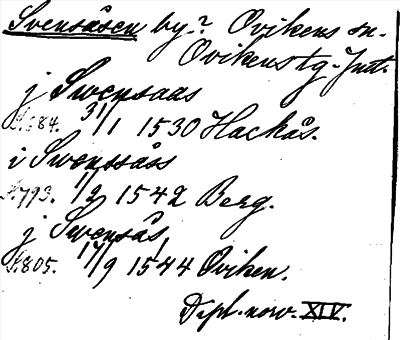 Svensåsen by? Ovikens sn.
Ovikens tg. Jmtl.
j Swensaas
S. 684. 31/1 1530 Hackås.
i Swenssåss
S. 793. 1/2 1542 Berg.
j Swensås,
S. 805. 17/9 1544 Oviken.
Dipl. norv. XIV.